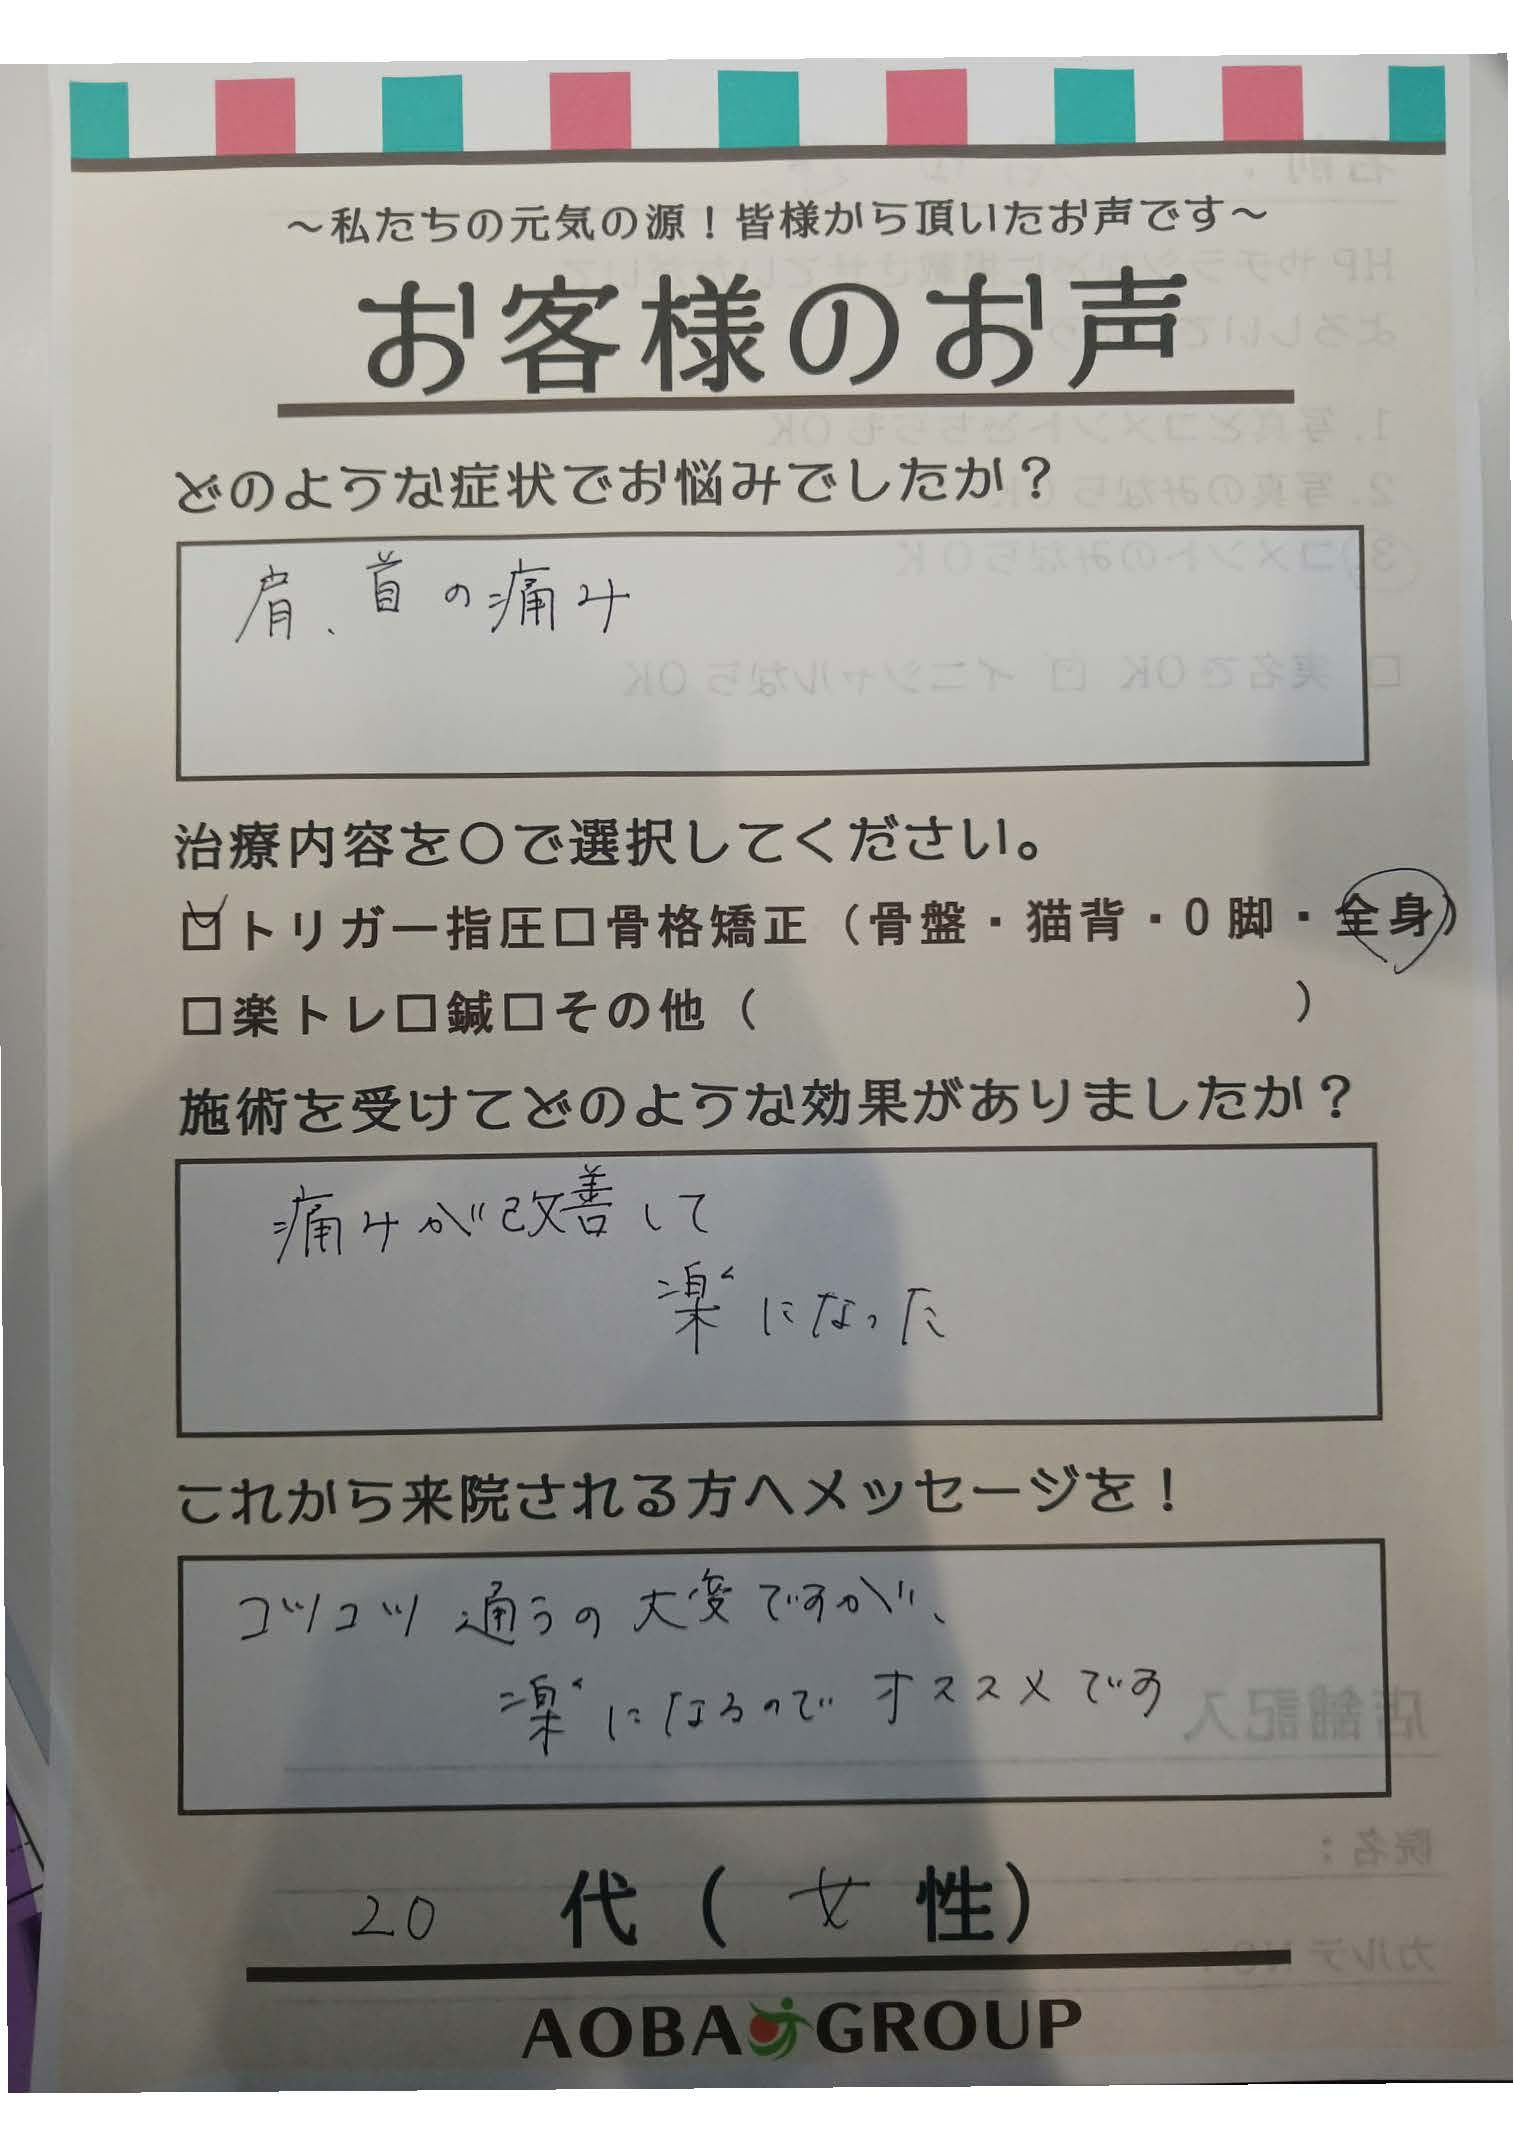 ～私たちの元気の源！皆様から頂いたお声です～
お客様のお声
どのような症状でお悩みでしたか？
肩、首の痛み
治療内容を〇で選択してください。
☑トリガー指圧□骨格矯正（骨盤・猫背・O脚・全身）
□楽トレ□鍼□その他（　　　　　　　　　　）
施術を受けてどのような効果がありましたか？
痛みが改善して
楽になった
これから来院される方へメッセージを！
コツコツ通うの大変ですが、
楽になるのでオススメです
20代（女性）
AOBA GROUP